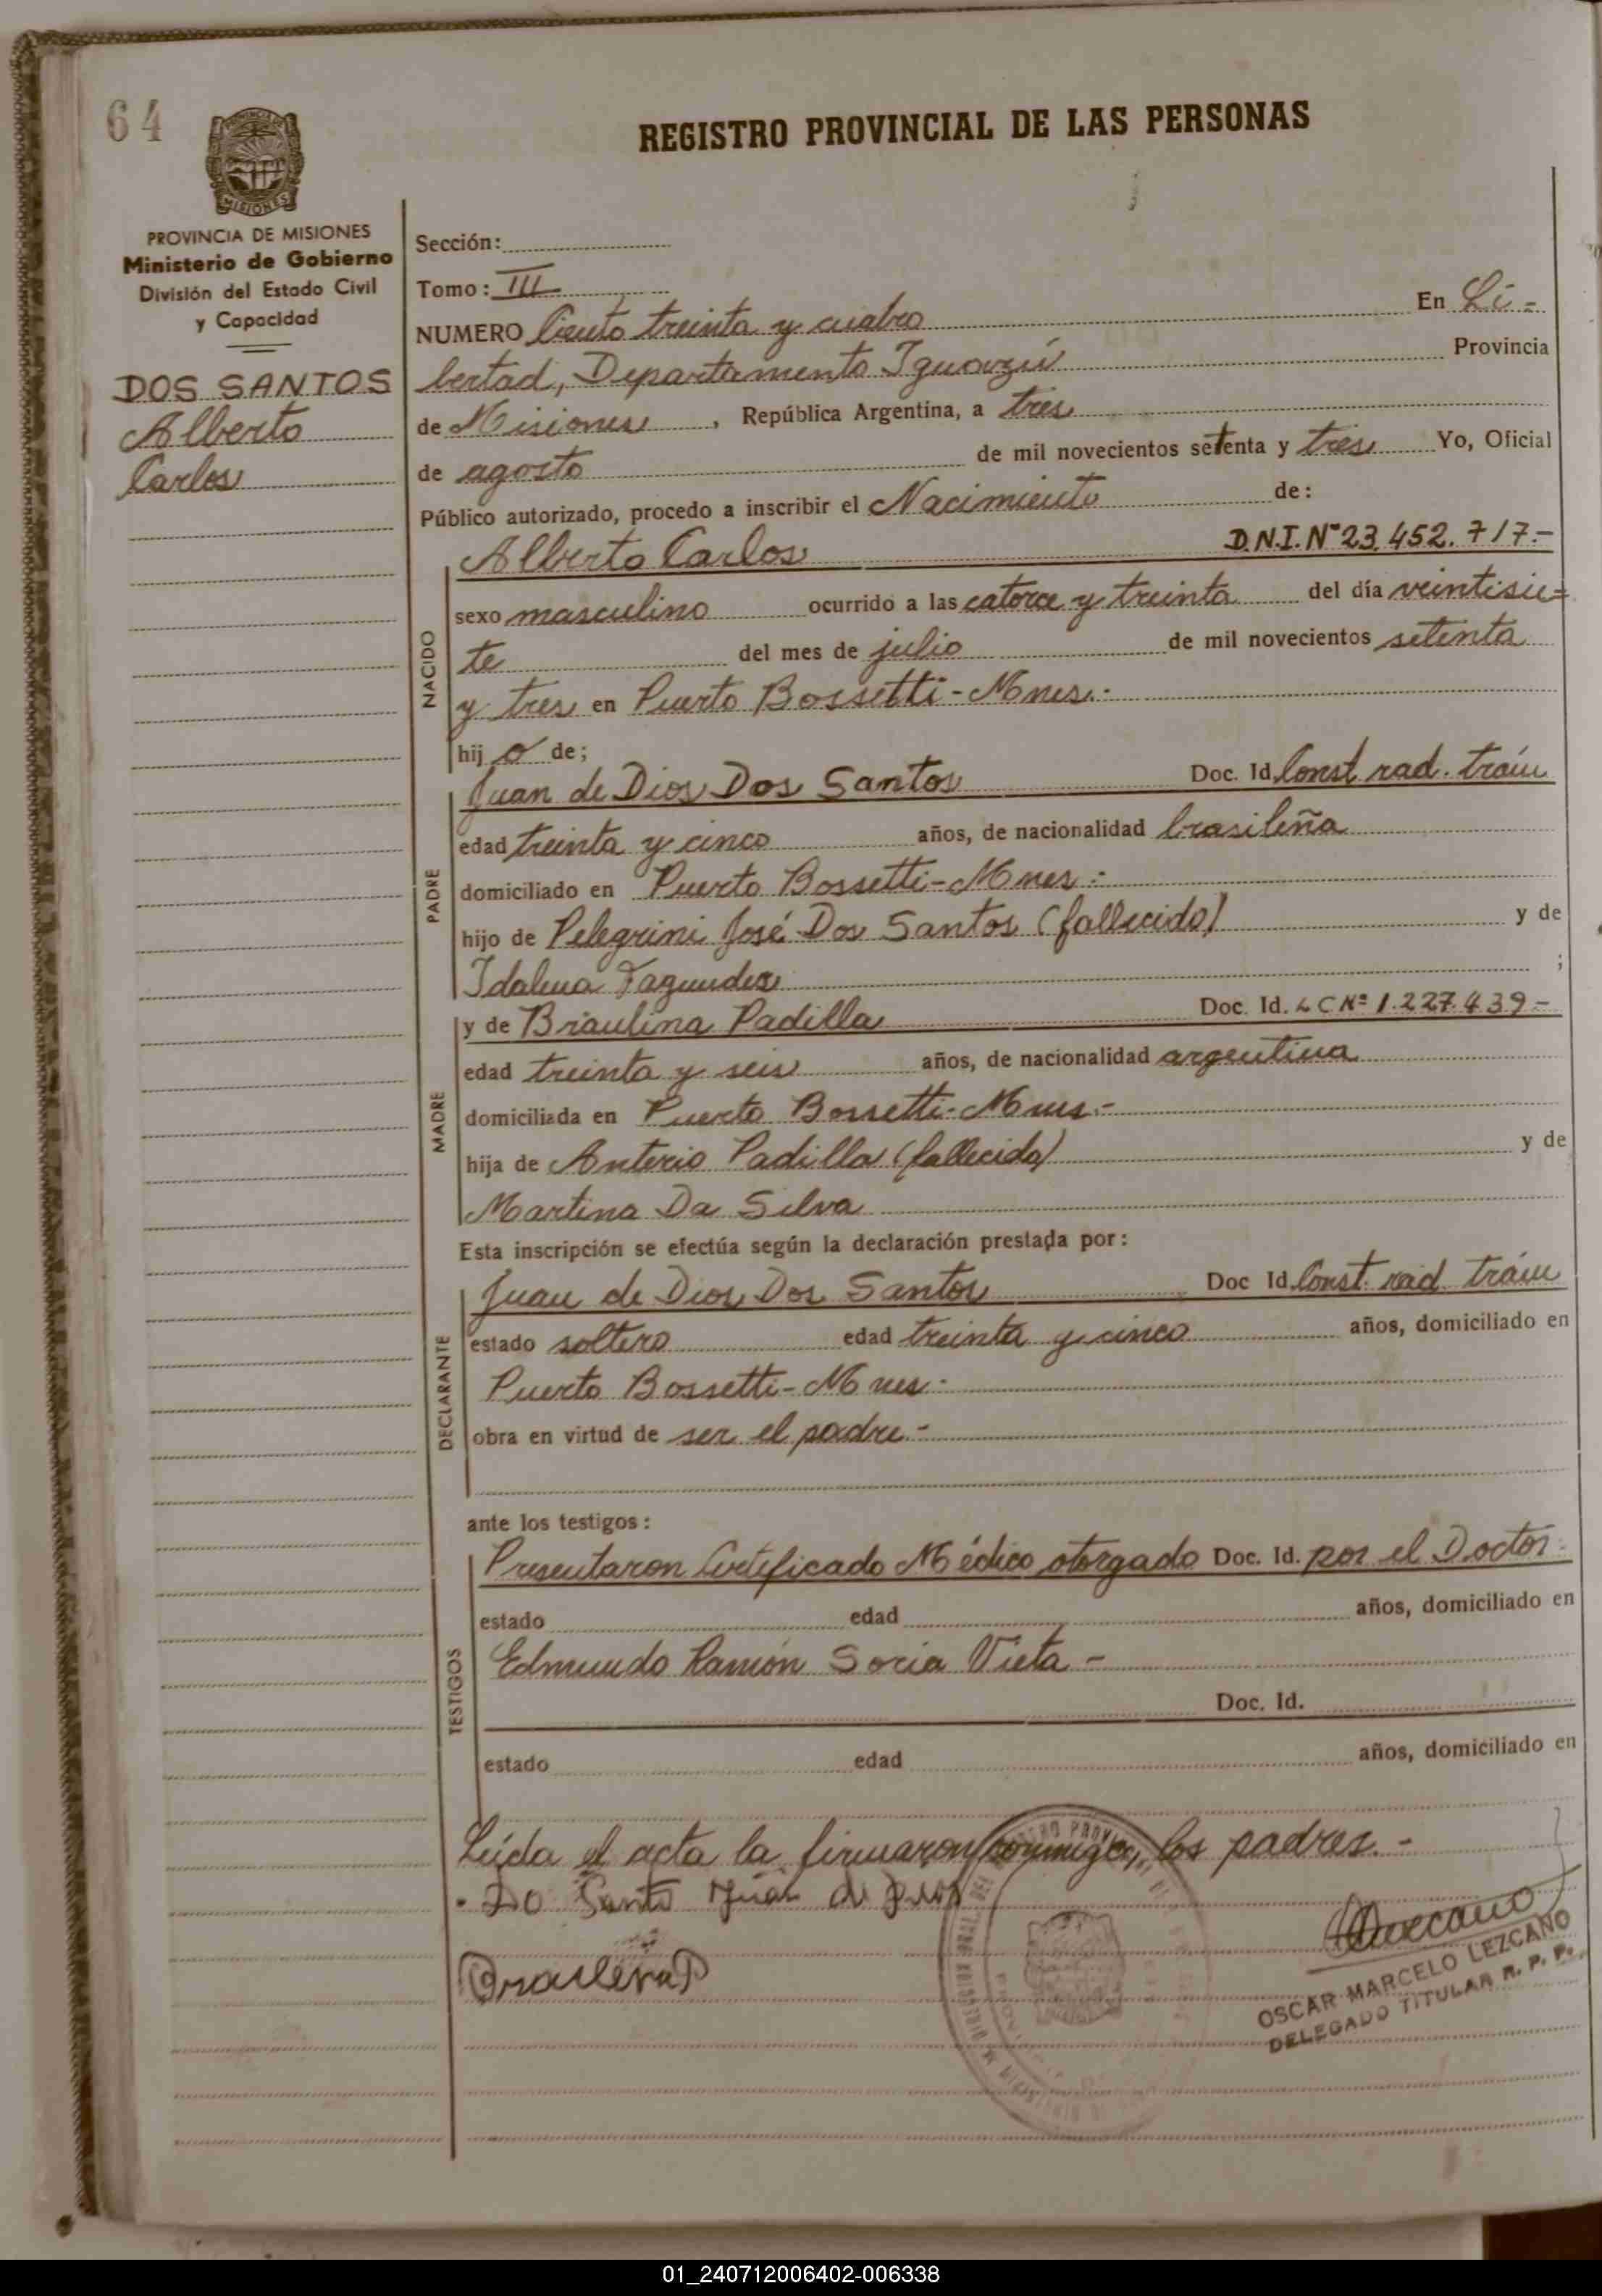 64
REGISTRO PROVINCIAL DE LAS PERSONAS
MISIONES
PROVINCIA DE MISIONES
Ministerio de Gobierno
División del Estado Civil
y Capacidad
DOS SANTOS
Alberto
Carlos
Sección:
Tomo: III
NUMERO Ciento treinta y cuatro En Li-
bertad, Departamento Iguazú Provincia
de Misiones, República Argentina, a tres
de agosto de mil novecientos setenta y tres Yo, Oficial
Público autorizado, procedo a inscribir el Nacimiento de:
NACIDO
Alberto Carlos D.N.I. Nº 23.452.717.-
sexo masculino ocurrido a las catorce y treinta del día veintisie=
te del mes de julio de mil novecientos setenta
y tres en Puerto Bossetti-Mnes.-
hijo de;
PADRE
Juan de Dios Dos Santos Doc. Id. Const. rad. trám
edad treinta y cinco años, de nacionalidad brasileña
domiciliado en Puerto Bossetti-Mnes.-
hijo de Pelegrini José Dos Santos (fallecido) y de
Idalina Fagundes ;
MADRE
y de Braulina Padilla Doc. Id. LC Nº 1.227.439-
edad treinta y seis años, de nacionalidad argentina
domiciliada en Puerto Bossetti-Mnes.-
hija de Anterio Padilla (fallecido) y de
Martina Da Silva
Esta inscripción se efectúa según la declaración prestada por:
DECLARANTE
Juan de Dios Dos Santos Doc Id. Const. rad. trám
estado soltero edad treinta y cinco años, domiciliado en
Puerto Bossetti-Mnes.-
obra en virtud de ser el padre.-
ante los testigos:
TESTIGOS
Presentaron Certificado Médico otorgado Doc. Id. por el Doctor
estado edad años, domiciliado en
Edmundo Ramón Soria Vieta -
Doc. Id.
estado edad años, domiciliado en
Leída el acta la firmaron conmigo, los padres.-
Do Santo Juan de Dios
OSCAR MARCELO LEZCANO
DELEGADO TITULAR R. P. P.
01_240712006402-006338